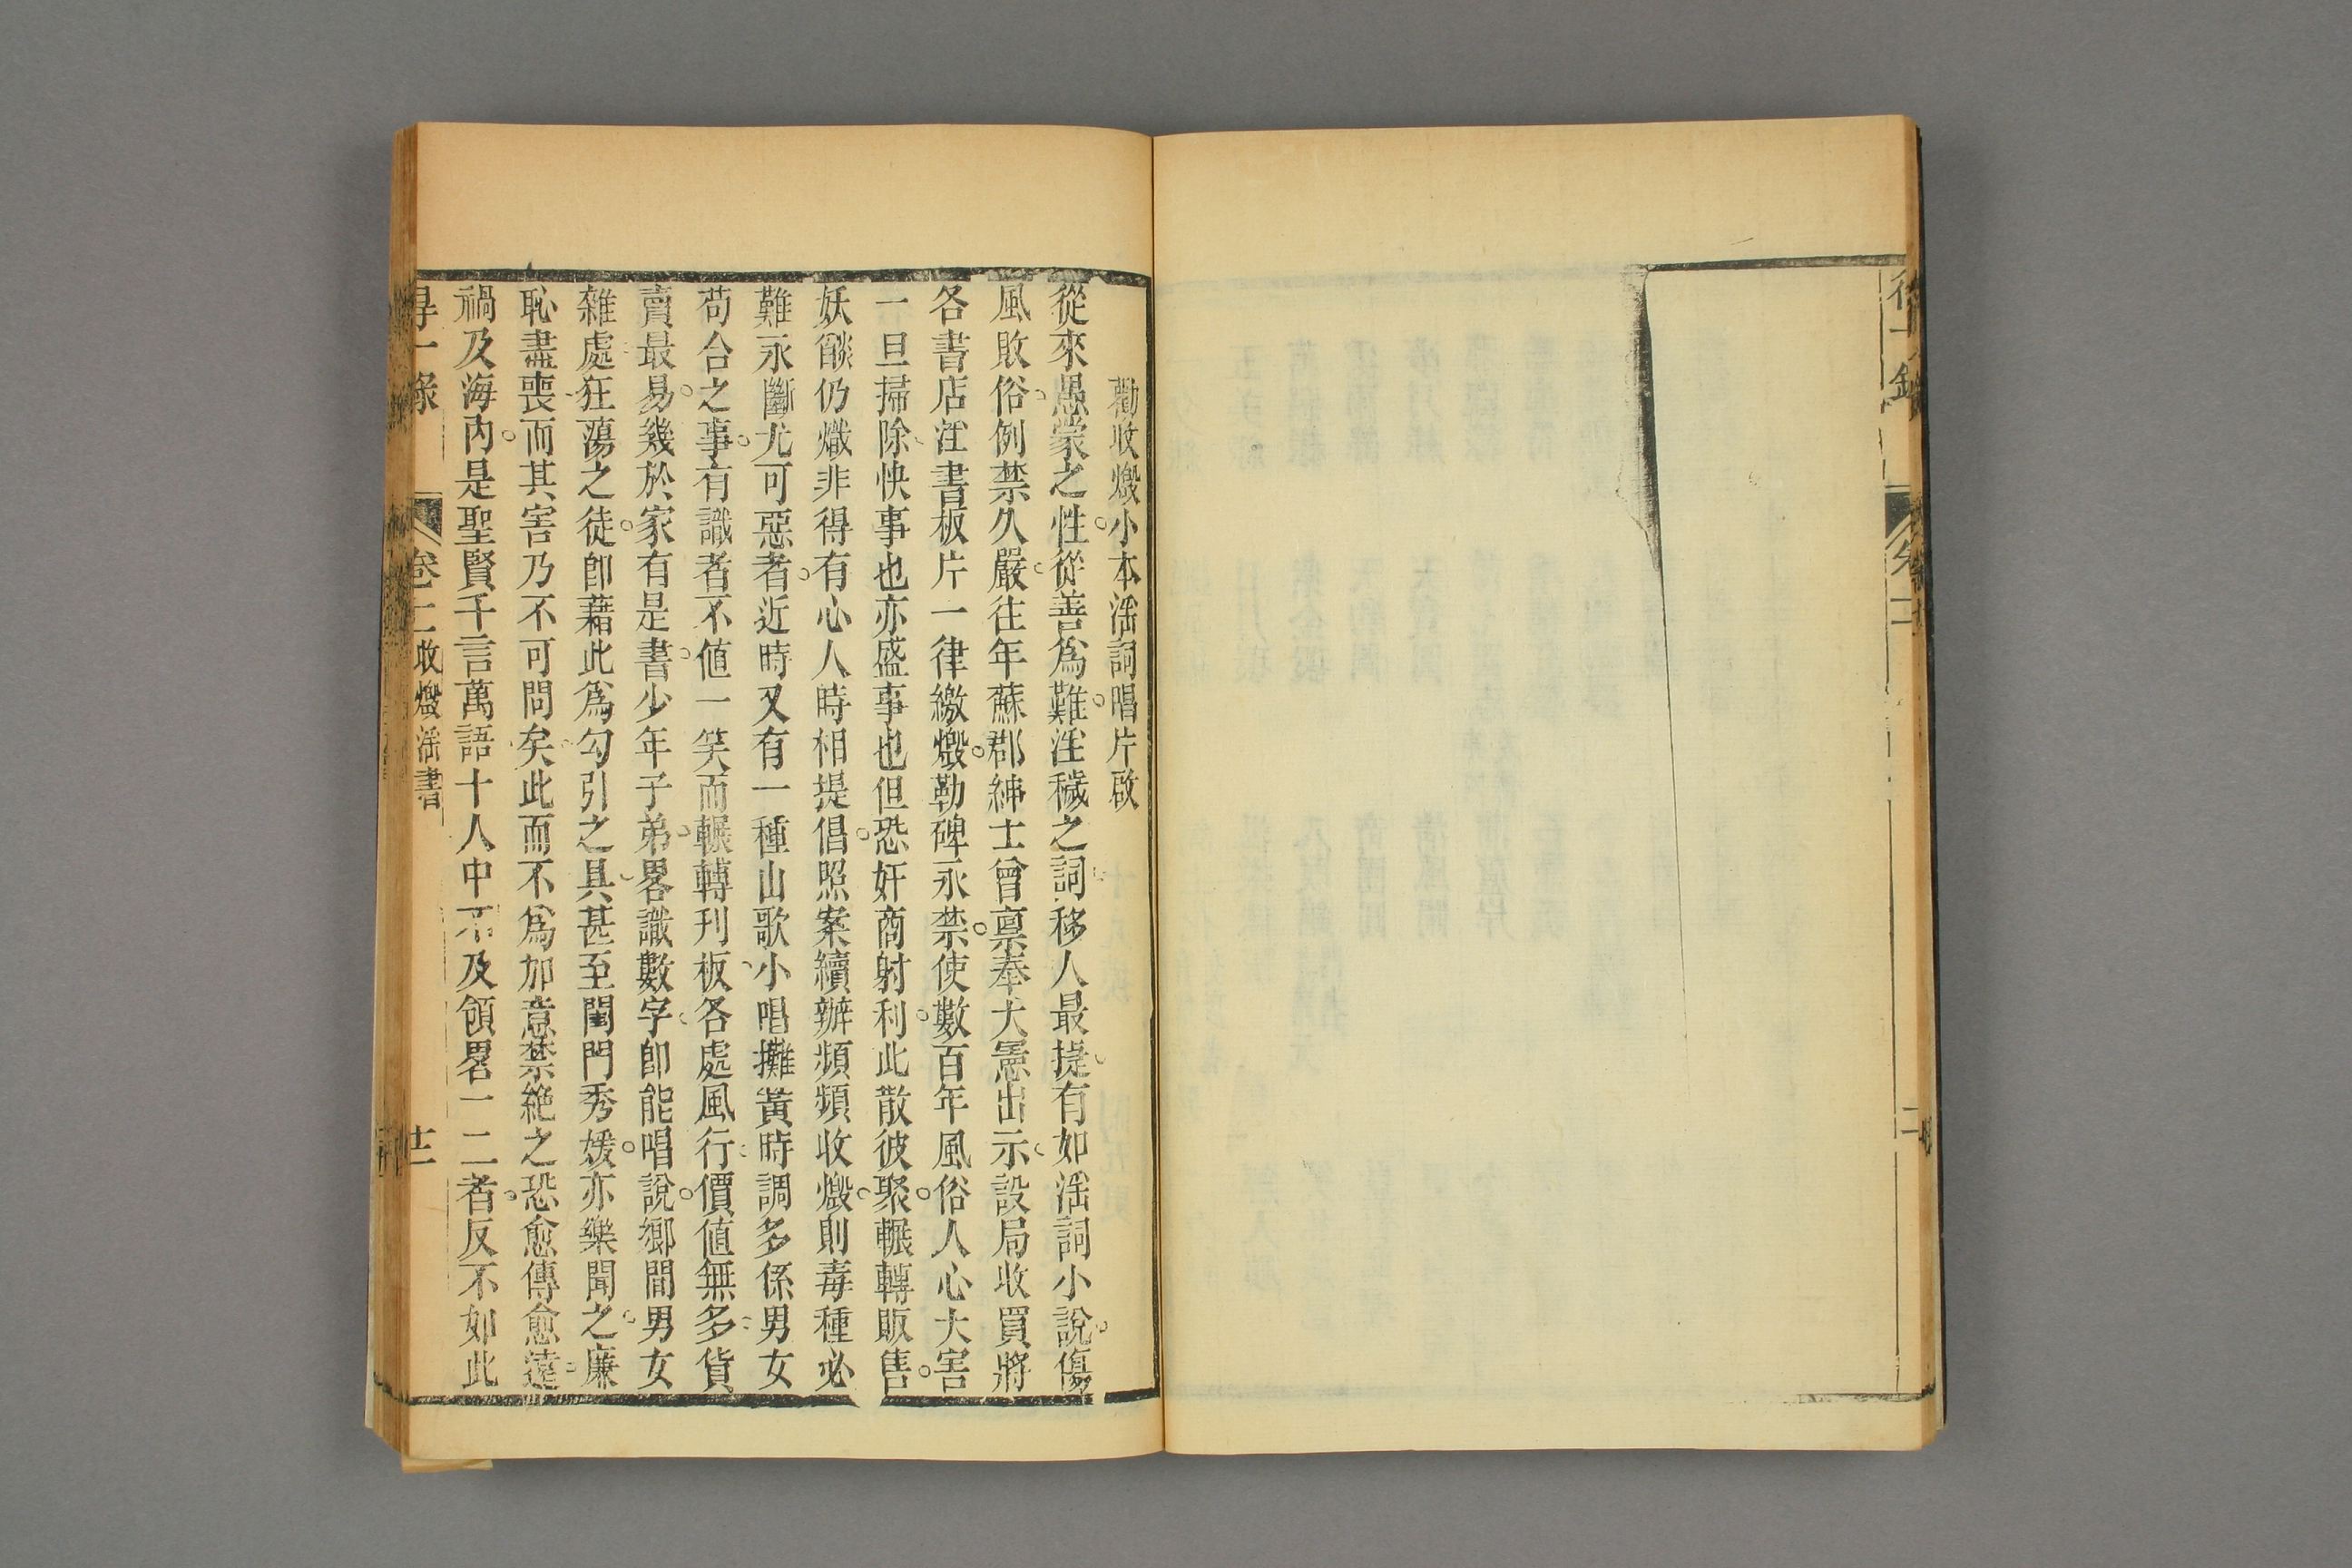 勸收燬小本滛詞唱片啟
從來愚蒙之性從善爲難淫穢之詞移人最捷有如滛詞小說傷
風敗俗例禁久嚴往年蘇郡紳士曾稟奉大憲出示設局收買將
各書店淫書板片一律繳燬勒碑永禁使數百年風俗人心大害
一旦掃除快事也亦盛事也但恐奸商射利此散彼聚輾轉販售
妖燄仍熾非得有心人時相提倡照案續辦頻頻收燬則毒種必
難永斷尤可惡者近時又有一種山歌小唱攤黃時調多係男女
苟合之事有識者不値一笑而輾轉刊板各處風行價値無多貨
賣最易幾於家有是書少年子弟畧識數字卽能唱說鄉間男女
雜處狂蕩之徒卽藉此爲勾引之具甚至閨門秀媛亦樂聞之廉
恥盡喪而其害乃不可問矣此而不爲加意禁絶之恐愈傳愈遠
禍及海內是聖賢千言萬語十人中不及領畧一二者反不如此
得一錄 卷十一 收燬滛書